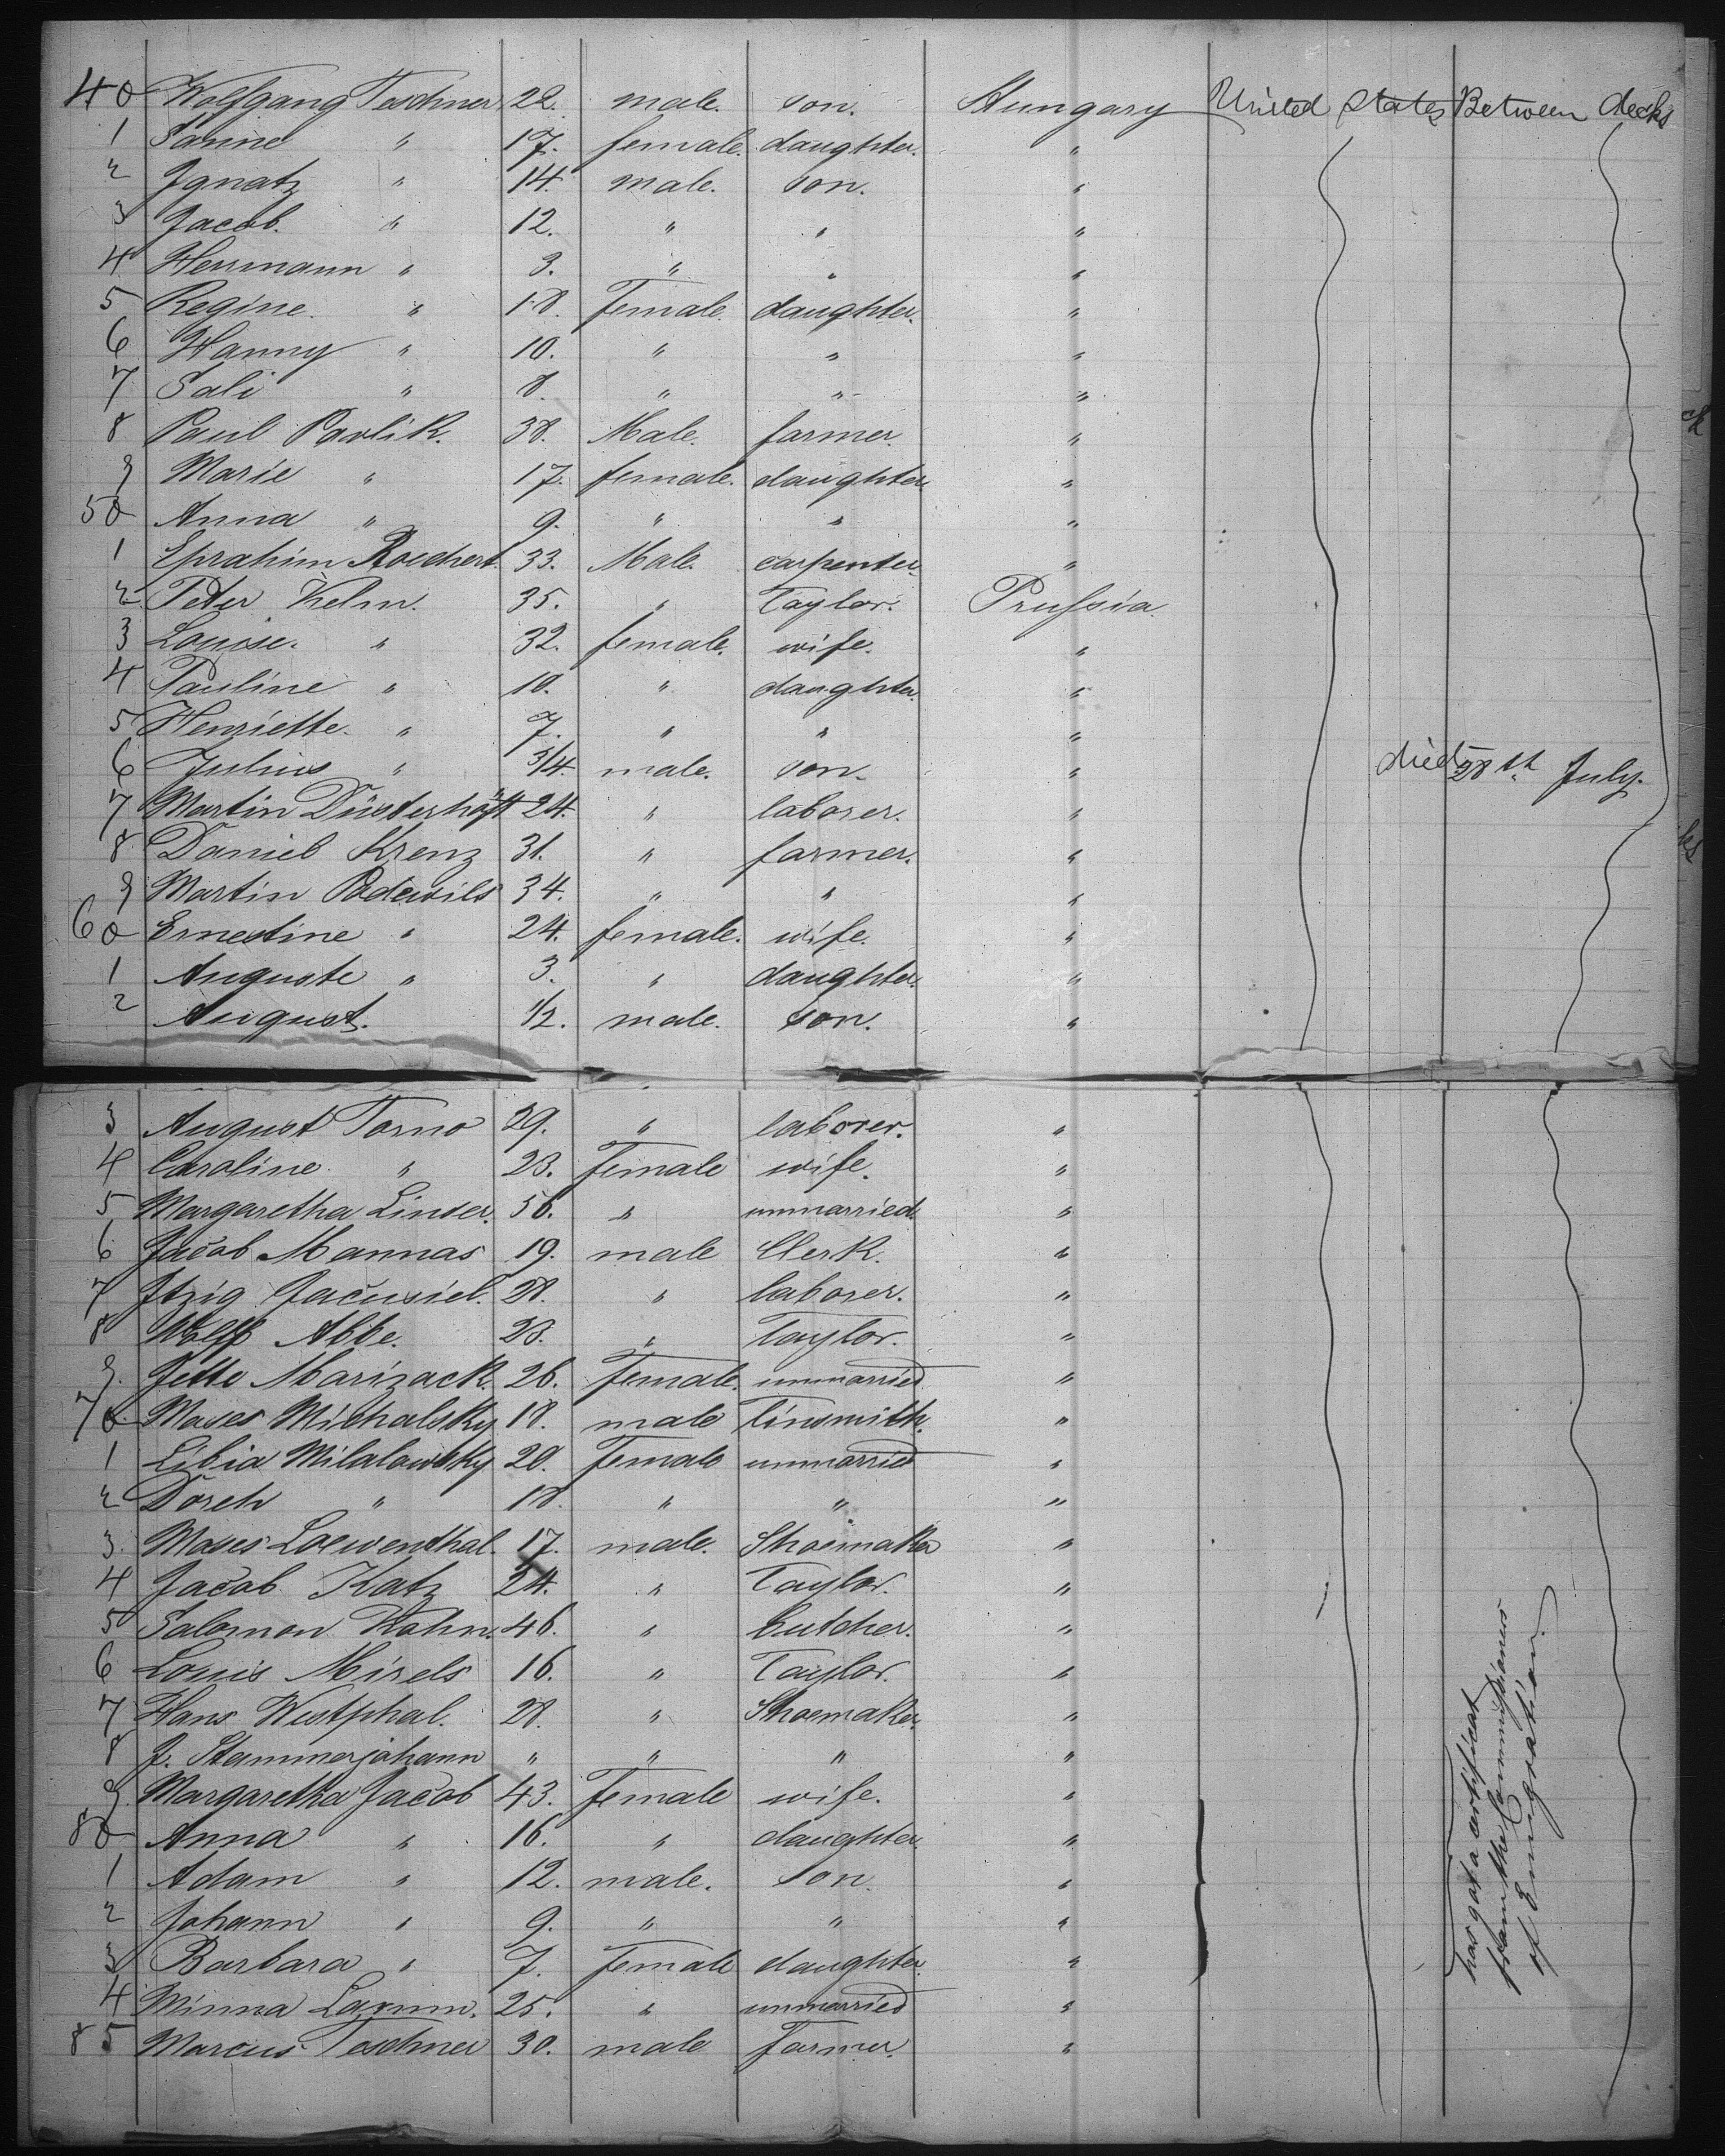 40 Wolfgang Taschner 22. male. son. Hungary United States Between decks
1 Sanne " 17. female. daughter. "
2 Ignatz " 14. male. son. "
3 Jacob. " 12. " " "
4 Herrmann " 3. " " "
5 Regine. " 18. Female. daughter. "
6 Hanny " 10. " " "
7 Sali " 8. " " "
8 Paul Pavlik. 38. Male. farmer. "
9 Marie " 17. female. daughter "
50 Anna " 9. " " "
1 Eprahim Roechert. 33. Male. carpenter. "
2 Peter Kelm. 35. " Taylor. Prussia.
3 Louise. " 32. female. wife. "
4 Pauline " 10. " daughter. "
5 Henriette. " 7. " " "
6 Julius " 3/4. male. son. " died 28th July.
7 Martin Düsterhöft 24. " laborer. "
8 Daniel Krenz 31. " farmer. "
9 Martin Podewils 34. " " "
60 Ernestine " 24. female. wife. "
1 Auguste " 3. " daughter. "
2 August. 1/2. male. son. "
3 August Torno 29. " laborer. "
4 Caroline " 23. Female wife. "
5 Margaretha Linser. 56. " unmarried. "
6 Jacob Mannas 19. male Clerk. "
7 Itzig Jacusiel. 28. " laborer. "
8 Wolff Abbe. 28. " Taylor. "
9. Jette Marizack. 26. Female. unmarried "
70. Moses Michalsky 18. male Tinsmith. "
1 Libia Milalowsky 20. Female unmarried "
2 Doreh " 18. " " "
3. Moses Loewenthal. 17. male. Shoemaker "
4 Jacob Katz 24. " Taylor. "
5 Salomon Kohn. 46. " butcher. "
6 Louis Mirels 16. " Taylor. "
7 Hans Westphal. 28. " Shoemaker. "
8 J. Stammerjohann " " " "
9. Margaretha Jacob 43. Female wife. "
80 Anna " 16. " daughter. "
1 Adam " 12. male. son. "
2 Johann " 9. " " "
3 Barbara " 7. Female daughter. "
4 Minna 25. " unmarried "
85 Marcus Taschner 30. male Farmer. "
has got a certificat
from the Commissioners
of Emigration.